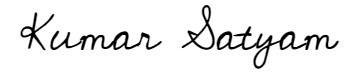 Kumar Satyam